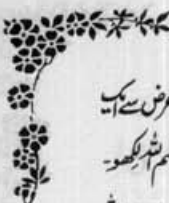 غرض سے ایک
بسم اللہ لکھو۔